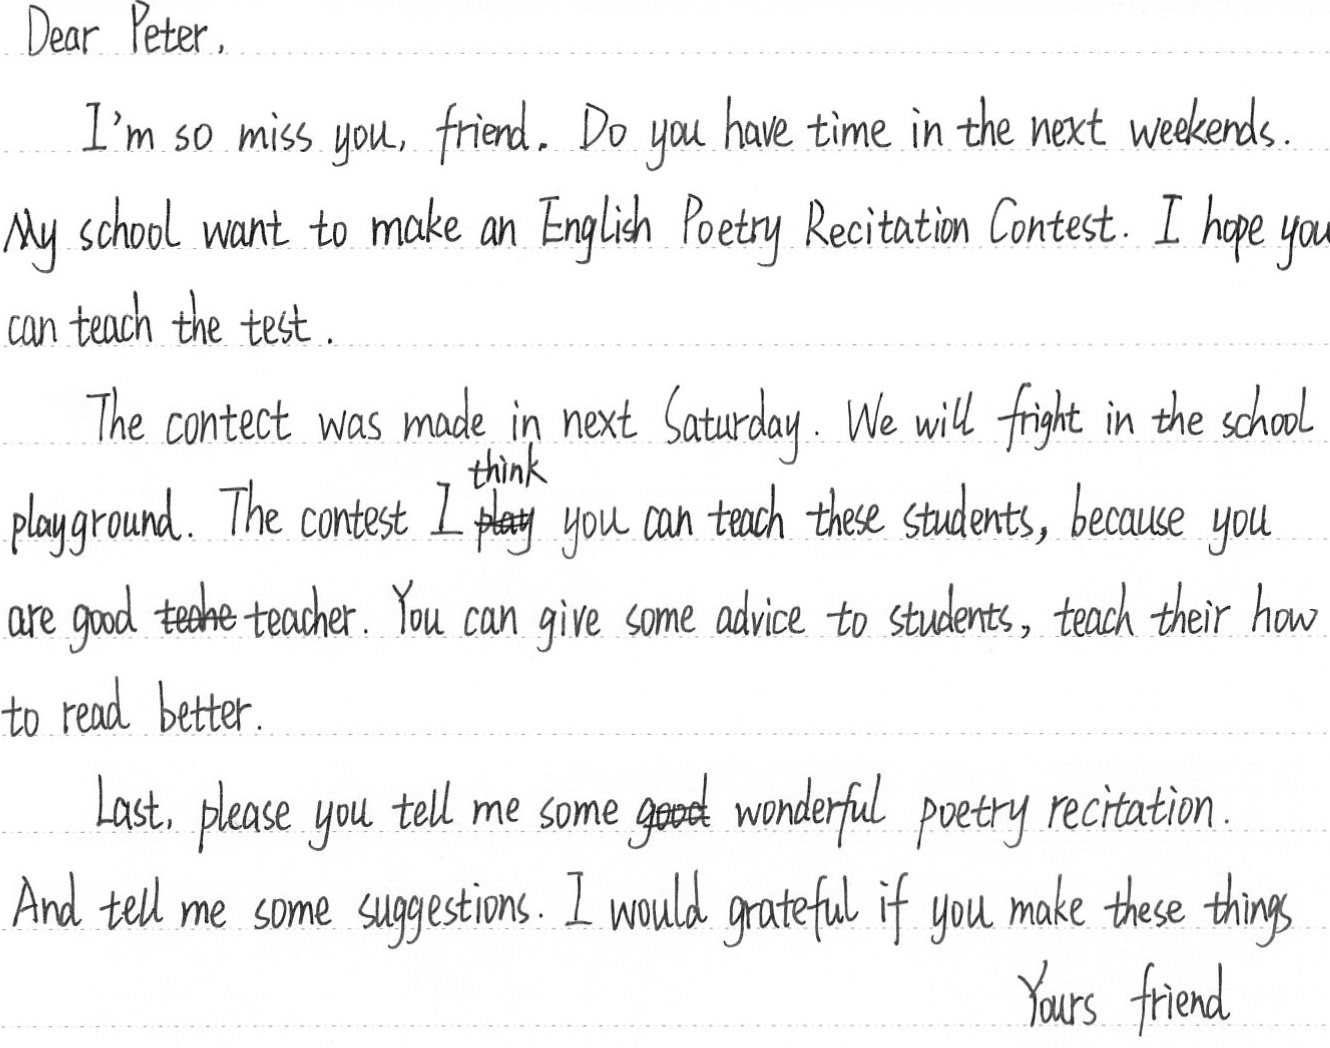 Dear Peter,
I'm so miss you, friend. Do you have time in the next weekends.
My school want to make an English Poetry Recitation Contest. I hope you
can teach the test.
The contect was made in next Saturday. We will fright in the school
think
playground. The contest I play you can teach these students, because you
are good teahe teacher. You can give some advice to students, teach their how
to read better.
Last, please you tell me some good wonderful poetry recitation.
And tell me some suggestions. I would grateful if you make these things
Yours friend